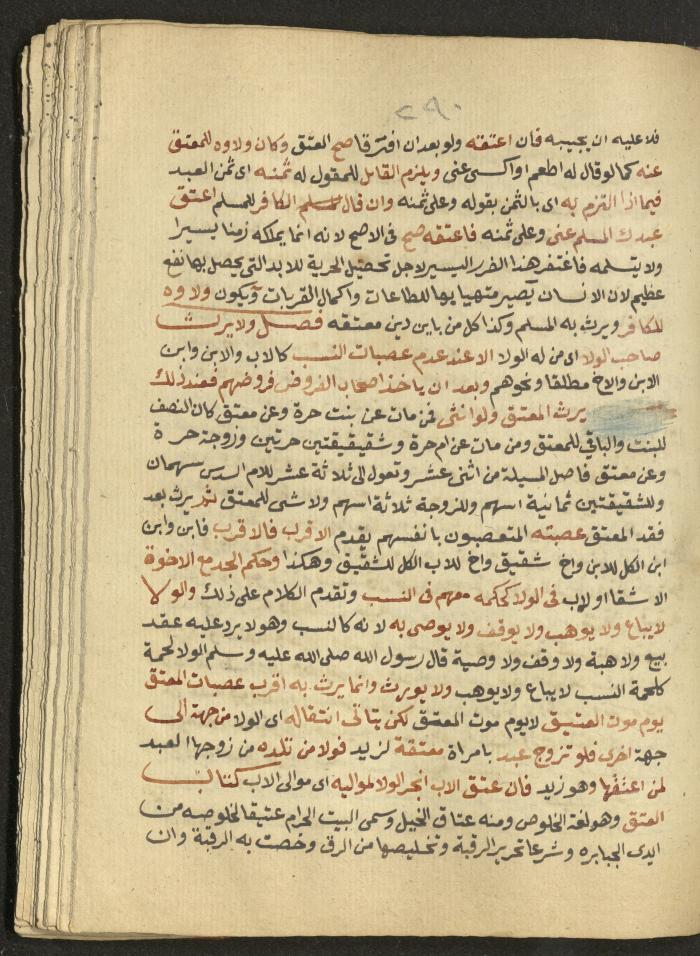 ٢٩٠
فلا عليه ان يجيبه فان اعتقه ولو بعد ان افترقا صح العتق وكان ولاوه للمعتق
عنه كما لو قال له اطعم او اكسى عنى ويلزم القائل للمقول له ثمنه اى ثمن العبد
فيما اذا التزم به اى بالثمن بقوله وعلى ثمنه وان قال مسلم الكافر للمسلم اعتق
عبدك المسلم عنى وعلى ثمنه فاعتقه صح فى الاصح لانه انما يملكه زمنا يسيرا
ولا يتسلمه فاغتفر هذا الضرر اليسير لاجل تحصيل الحرية للابد التى يحصل بها نفع
عظيم لان الانسان يصير متهيا بها للطاعات واكمال القربات ويكون ولاوه
للكافر ويرث به المسلم وكذا كل من باين دين معتقه فصل ولا يرث
صاحب الولا اى من له الولا الا عند عدم عصبات النسب كالاب والابن وابن
الابن والاخ مطلقا ونحوهم وبعد ان ياخذ اصحاب الفروض فروضهم فعند ذلك
يرث المعتق ولو انثى فمن مات عن بنت حرة وعن معتق كان النصف
للبنت والباقى للمعتق ومن مات عن ام حرة وشقيقتين حرتين وزوجة حرة
وعن معتق فاصل المسيلة من اثنى عشر وتعول الى ثلاثة عشر للام السدس سهمان
وللشقيقتين ثمانية اسهم وللزوجة ثلاثة اسهم ولا شى للمعتق ثم يرث بعد
فقد المعتق عصبته المتعصبون بانفسهم يقدم الاقرب فالاقرب فابن وابن
ابن الكل للابن واخ شقيق واخ للاب الكل للشقيق وهكذا وحكم الجد مع الاخوة
الاشقا او لاب فى الولا كحكمه معهم فى النسب وتقدم الكلام على ذلك والولا
لا يباع ولا يوهب ولا يوقف ولا يوصى به لانه كالنسب وهو لا يرد عليه عقد
بيع ولا هبة ولا وقف ولا وصية قال رسول الله صلى الله عليه وسلم الولا لحمة
كلحمة النسب لا يباع ولا يوهب ولا يورث وانما يرث به اقرب عصبات المعتق
يوم موت العتيق لا يوم موت المعتق لكن يتاتى انتقاله اى الولا من جهة الى
جهة اخرى فلو تزوج عبد بامراة معتقة لزيد فولا من تلده من زوجها العبد
لمن اعتقها وهو زيد فان عتق الاب انجر الولا لمواليه اى موالى الاب كتاب
العتق وهو لغة الخلوص ومنه عتاق الخيل وسمى البيت الحرام عتيقا لخلوصه من
ايدى الجبابره وشرعا تحرير الرقبة وتخليصها من الرق وخصت به الرقبة وان